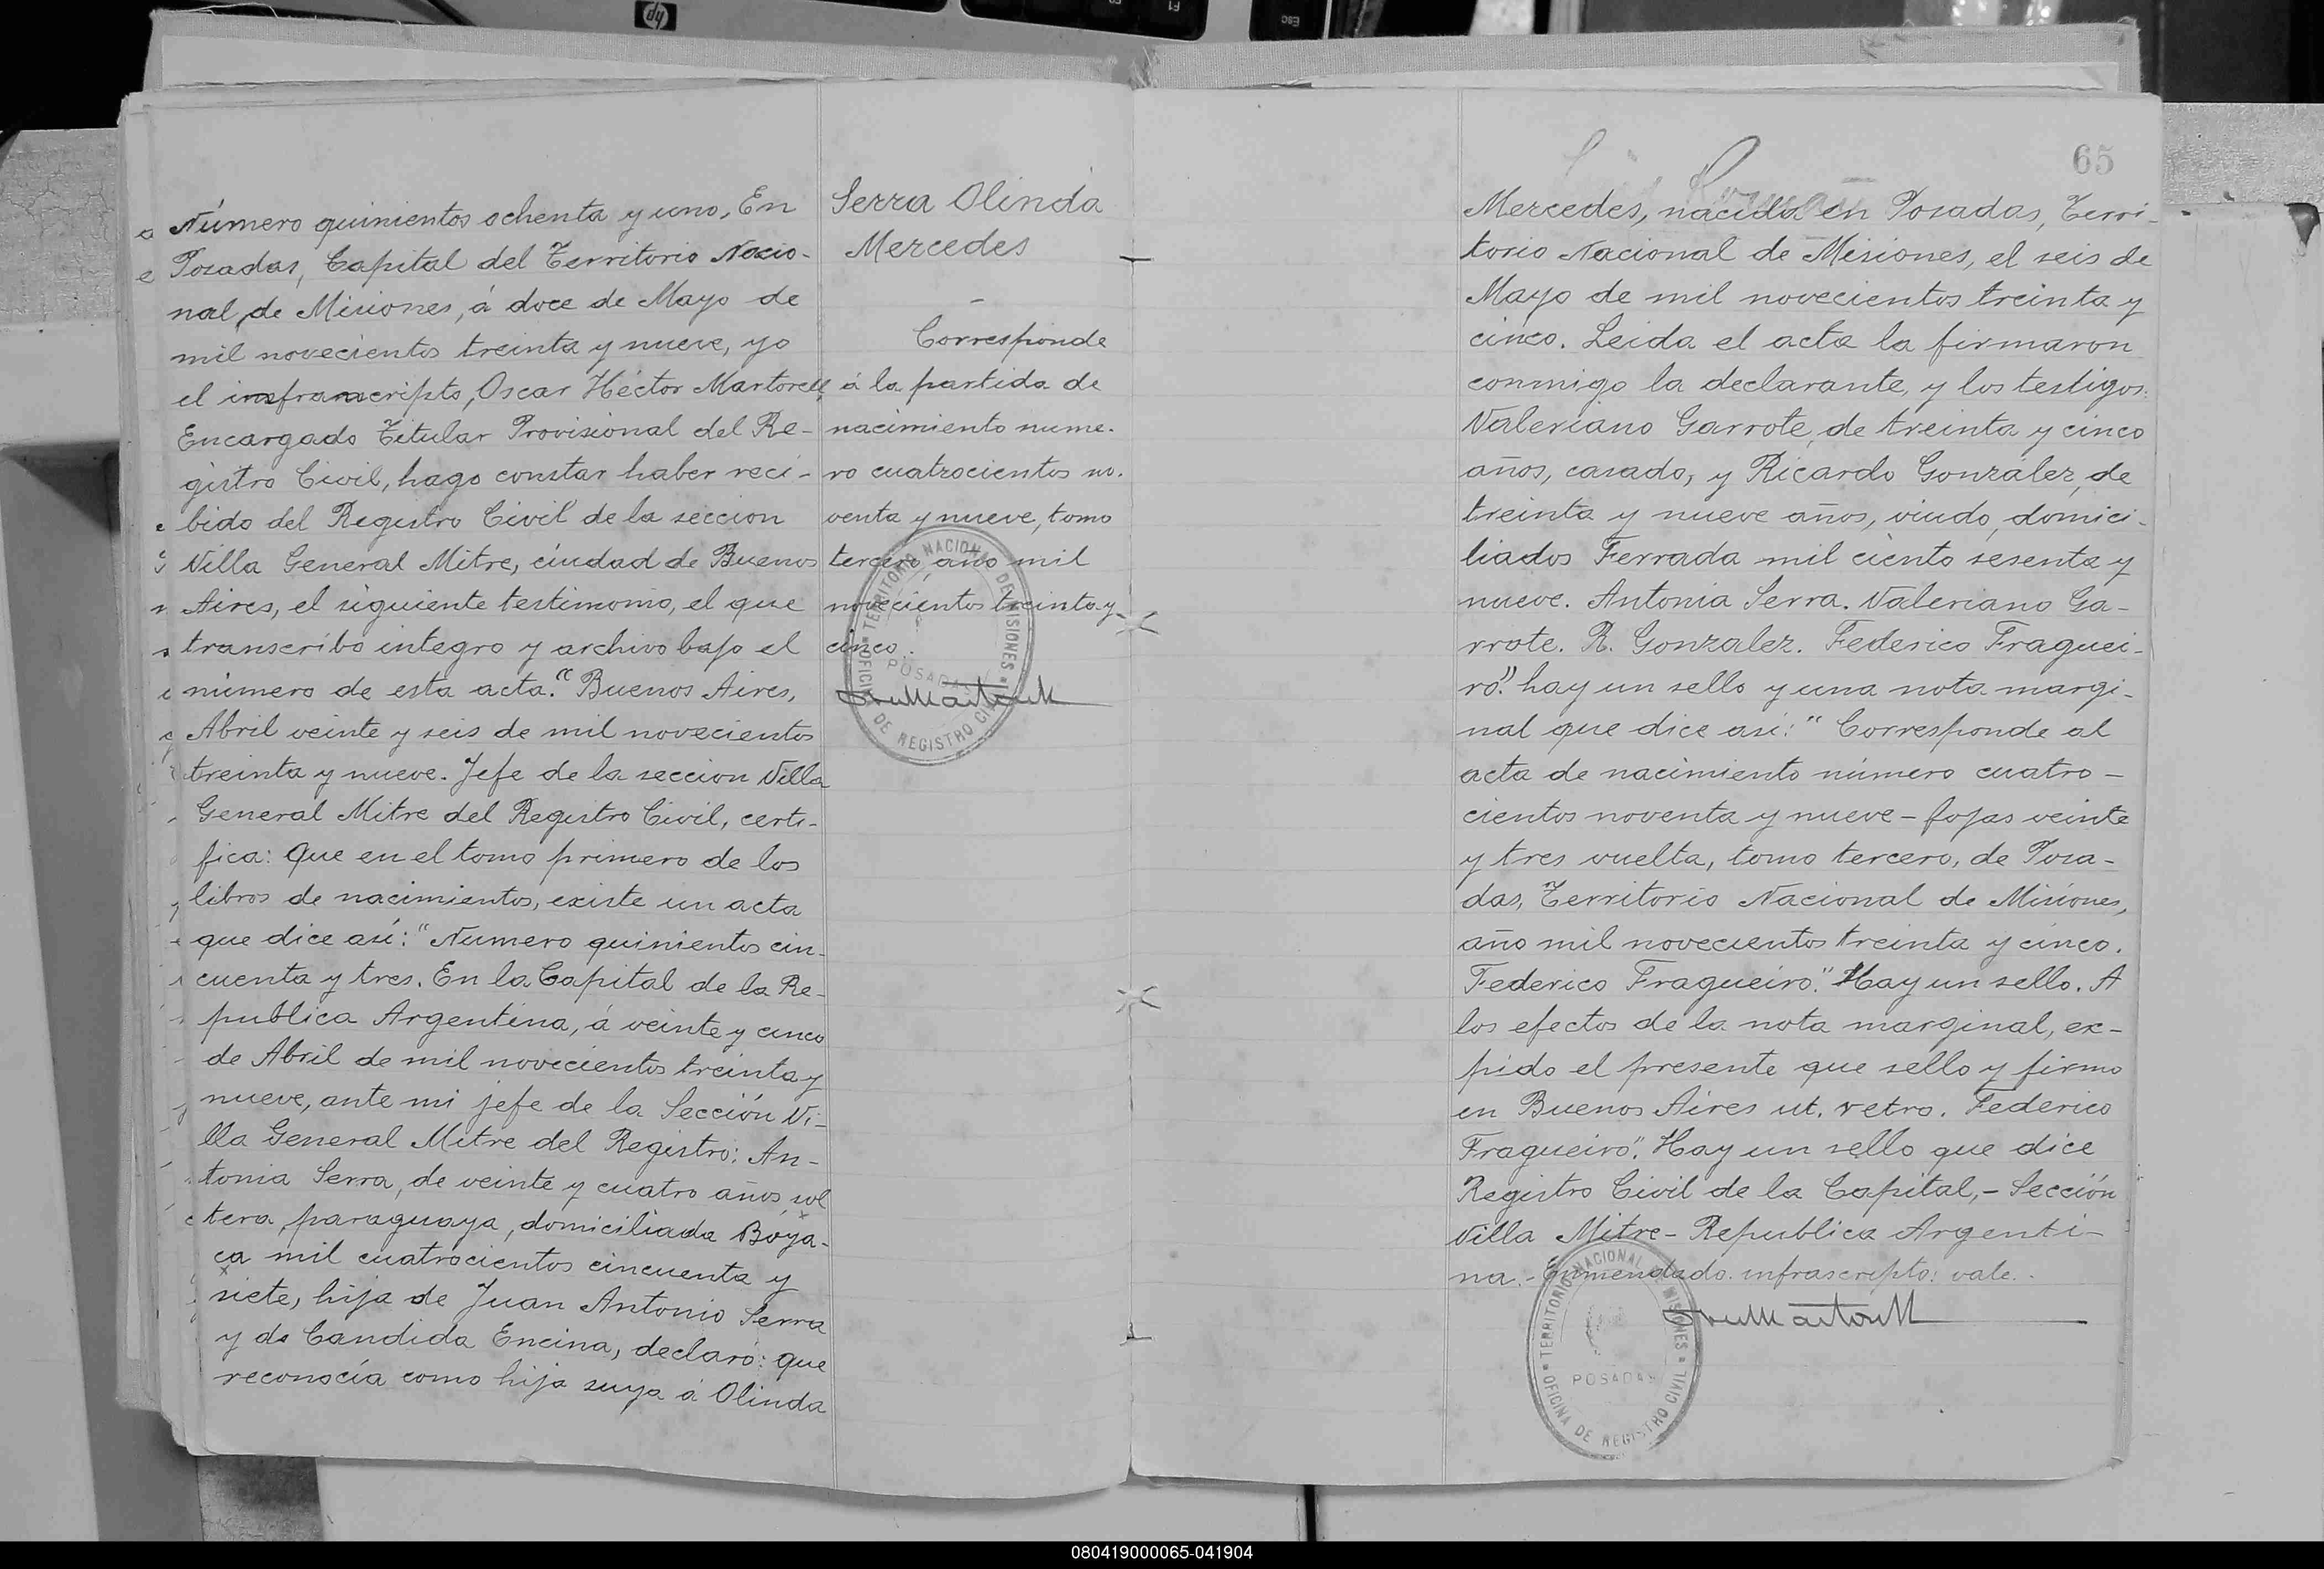 Número quinientos ochenta y uno, En
Posadas, Capital del Territorio Nacio-
nal, de Misiones, á doce de Mayo de
mil novecientos treinta y nueve, yo
el insfranscripto, Oscar Héctor Martorell,
Encargado Titular Provisional del Re-
gistro Civil, hago constar haber reci-
bido del Registro Civil de la seccion
Villa General Mitre, ciudad de Buenos
Aires, el siguiente testimonio, el que
transcribo integro y archivo bajo el
número de esta acta. "Buenos Aires,
Abril veinte y seis de mil novecientos
treinta y nueve. Jefe de la seccion Villa
General Mitre del Registro Civil, certi-
fica: Que en el tomo primero de los
libros de nacimientos, existe un acta
que dice así: "Numero quinientos cin-
cuenta y tres. En la Capital de la Re-
publica Argentina, á veinte y cinco
de Abril de mil novecientos treinta y
nueve, ante mi jefe de la Sección Vi-
lla General Mitre del Registro: An-
tonia Serra, de veinte y cuatro años, sol
tera, paraguaya, domiciliada Boya-
ca mil cuatrocientos cincuenta y
siete, hija de Juan Antonio Serra
y de Candida Encina, declaró: que
reconocía como hija suya á Olinda
Serra Olinda
Mercedes
-
Corresponde
á la partida de
nacimiento nume-
ro cuatrocientos no-
venta y nueve, tomo
tercero, año mil
novecientos treinta y
cinco.
TERRITORIO NACIONAL DE MISIONES
POSADAS
OFICINA DE REGISTRO CIVIL
65
Mercedes, nacida en Posadas, Terri-
torio Nacional de Misiones, el seis de
Mayo de mil novecientos treinta y
cinco. Leida el acta la firmaron
conmigo la declarante, y los testigos:
Valeriano Garrote, de treinta y cinco
años, casado, y Ricardo González, de
treinta y nueve años, viudo, domici-
liados Ferrada mil ciento sesenta y
nueve. Antonia Serra. Valeriano Ga-
rrote. R. Gonzalez. Federico Fraguei-
ro". hay un sello y una nota margi-
nal que dice así: "Corresponde al
acta de nacimiento número cuatro-
cientos noventa y nueve - fojas veinte
y tres vuelta, tomo tercero, de Posa-
das, Territorio Nacional de Misiones,
año mil novecientos treinta y cinco.
Federico Fragueiro". Hay un sello. A
los efectos de la nota marginal, ex-
pido el presente que sello y firmo
en Buenos Aires ut. retro. Federico
Fragueiro". Hay un sello que dice
Registro Civil de la Capital,- Sección
Villa Mitre - Republica Argenti-
na.- Enmendado: infrascripto: vale.
TERRITORIO NACIONAL DE MISIONES
POSADAS
OFICINA DE REGISTRO CIVIL
080419000065-041904